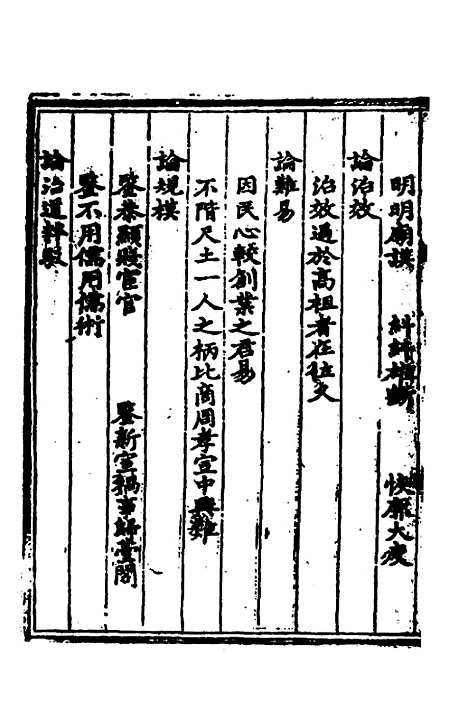 明明廟謨　糾糾雄斷　恢廓大度
論治效
治效過於高祖者在位久
論難易
因民心較創業之君易
不階尺土一人之柄比商周孝宣中興難
論規模
鑒恭顯寢宦官　鑒新室禍事歸臺閣
鑒不用儒用儒術
論治道粹駁